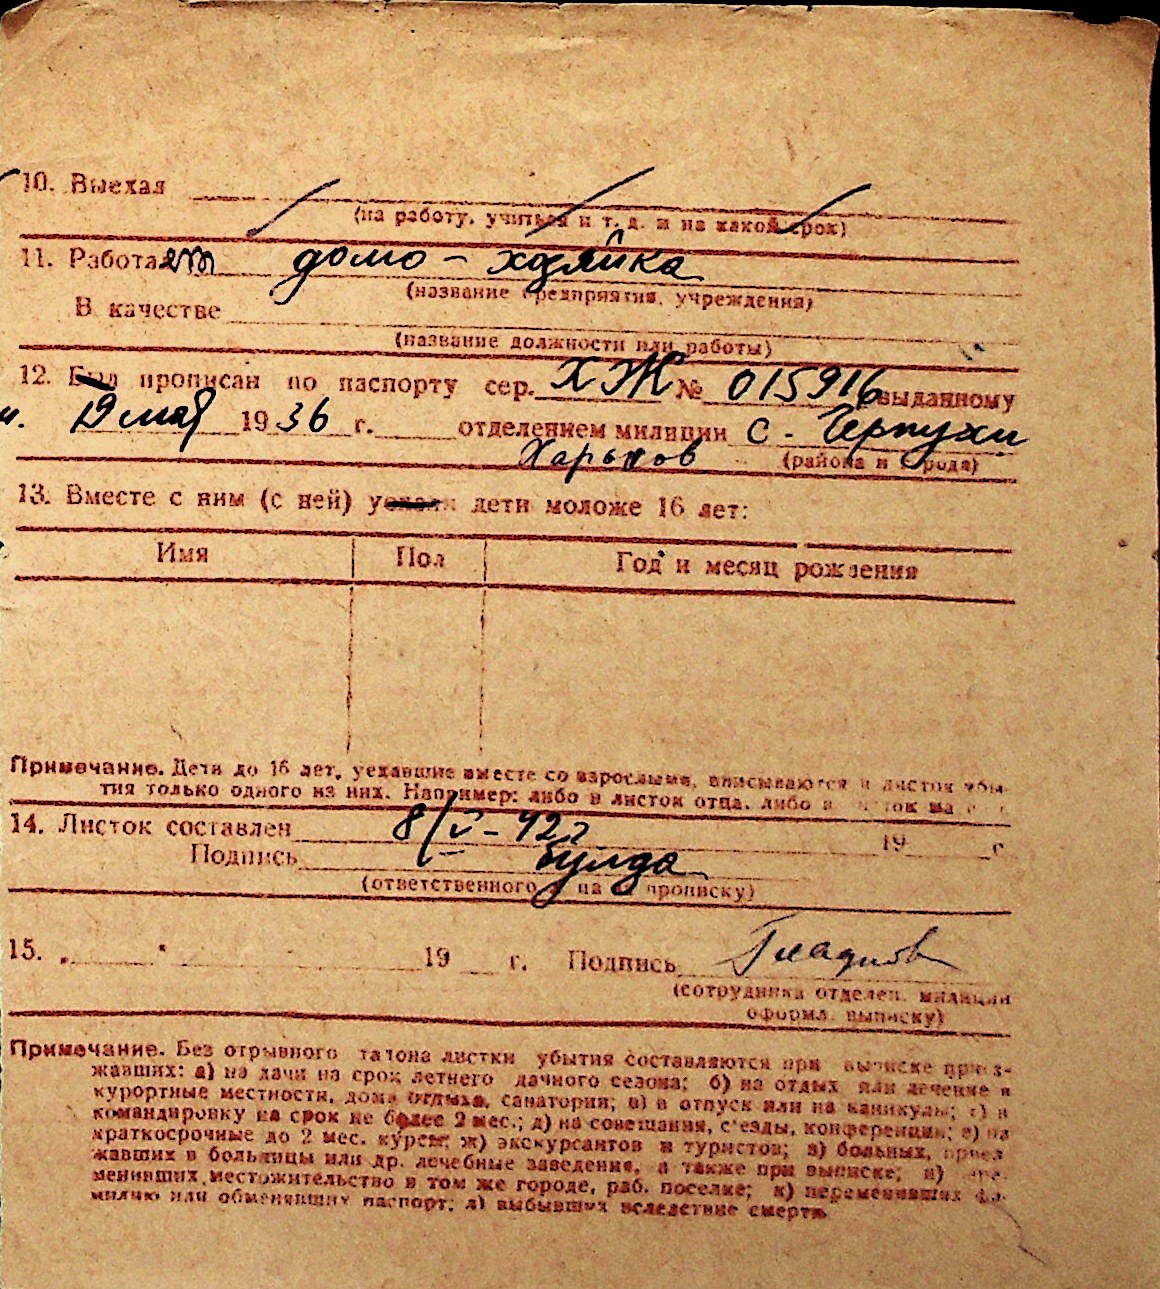 10. Выехал
(на работу, учиться и т. д. и на какой срок)
11. Работает домо-хозяйка
(название предприятия, учреждения)
В качестве
(название должности или работы)
12. Был прописан по паспорту сер. ХЖ № 015916 выданному
19 мая 1936 г. отделением милиции с.
Харьков (района и города)
13. Вместе с ним (с ней) уехали дети моложе 16 лет:
Имя Пол Год и месяц рождения
Примечание. Дети до 16 лет, уехавшие вместе со взрослыми, вписываются в листок убы-
тия только одного из них. Например: либо в листок отца, либо в листок ма
14. Листок составлен 8/V-42г 19 г
Подпись Булда
(ответственного за прописку)
15. „ " 19 г. Подпись Гладков
(сотрудника отделен. милиции
оформл. выписку)
Примечание. Без отрывного талона листки убытия составляются при выписке приез-
жавших: а) на дачи на срок летнего дачного сезона; б) на отдых или лечение в
курортные местности, дома отдыха, санатории; в) в отпуск или на каникулы; г) в
командировку на срок не более 2 мес.; д) на совещания, с'езды, конференции; е) на
краткосрочные до 2 мес. курсы; ж) экскурсантов и туристов; з) больных, приез
жавших в больницы или др. лечебные заведения, а также при выписке; и) пере-
менивших местожительство в том же городе, раб. поселке; к) переменивших фа-
милию или обменявших паспорт; л) выбывших вследствие смерти.